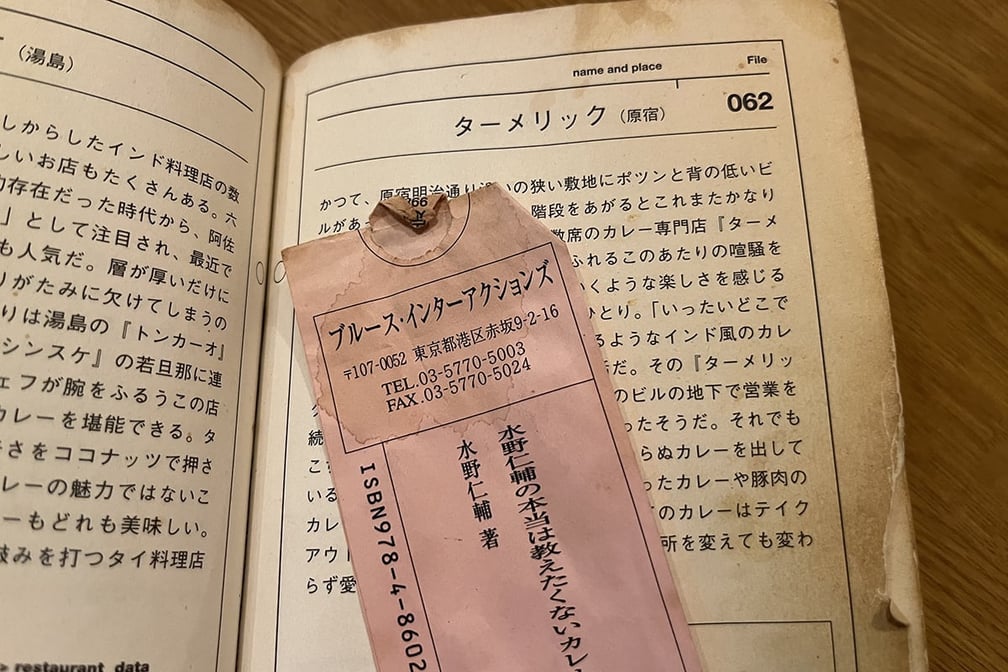 （湯島）
しからしたインド料理店の数
しいお店もたくさんある。六
の存在だった時代から、阿佐
」として注目され、最近で
も人気だ。層が厚いだけに
りがたみに欠けてしまうの
りは湯島の『トンカーオ』
シンスケ』の若旦那に連
ェフが腕をふるうこの店
カレーを堪能できる。タ
さをココナッツで押さ
レーの魅力ではないこ
ーもどれも美味しい。
鼓みを打つタイ料理店
> restaurant data
name and place
File
062
ターメリック（原宿）
かつて、原宿明治通り沿いの狭い敷地にポツンと背の低いビ
ルがあ
階段をあがるとこれまたかなり
数席のカレー専門店『ターメ
ふれるこのあたりの喧騒を
いくような楽しさを感じる
ひとり。「いったいどこで
るようなインド風のカレ
だ。その『ターメリッ
のビルの地下で営業を
続
ったそうだ。それでも
こ
らぬカレーを出して
いる
ったカレーや豚肉の
カレ
のカレーはテイク
アウト
所を変えても変わ
らず愛
ブルース・インターアクションズ
〒107-0052 東京都港区赤坂9-2-16
TEL.03-5770-5003
FAX.03-5770-5024
水野仁輔の本当は教えたくないカレー
水野仁輔 著
ISBN978-4-8602